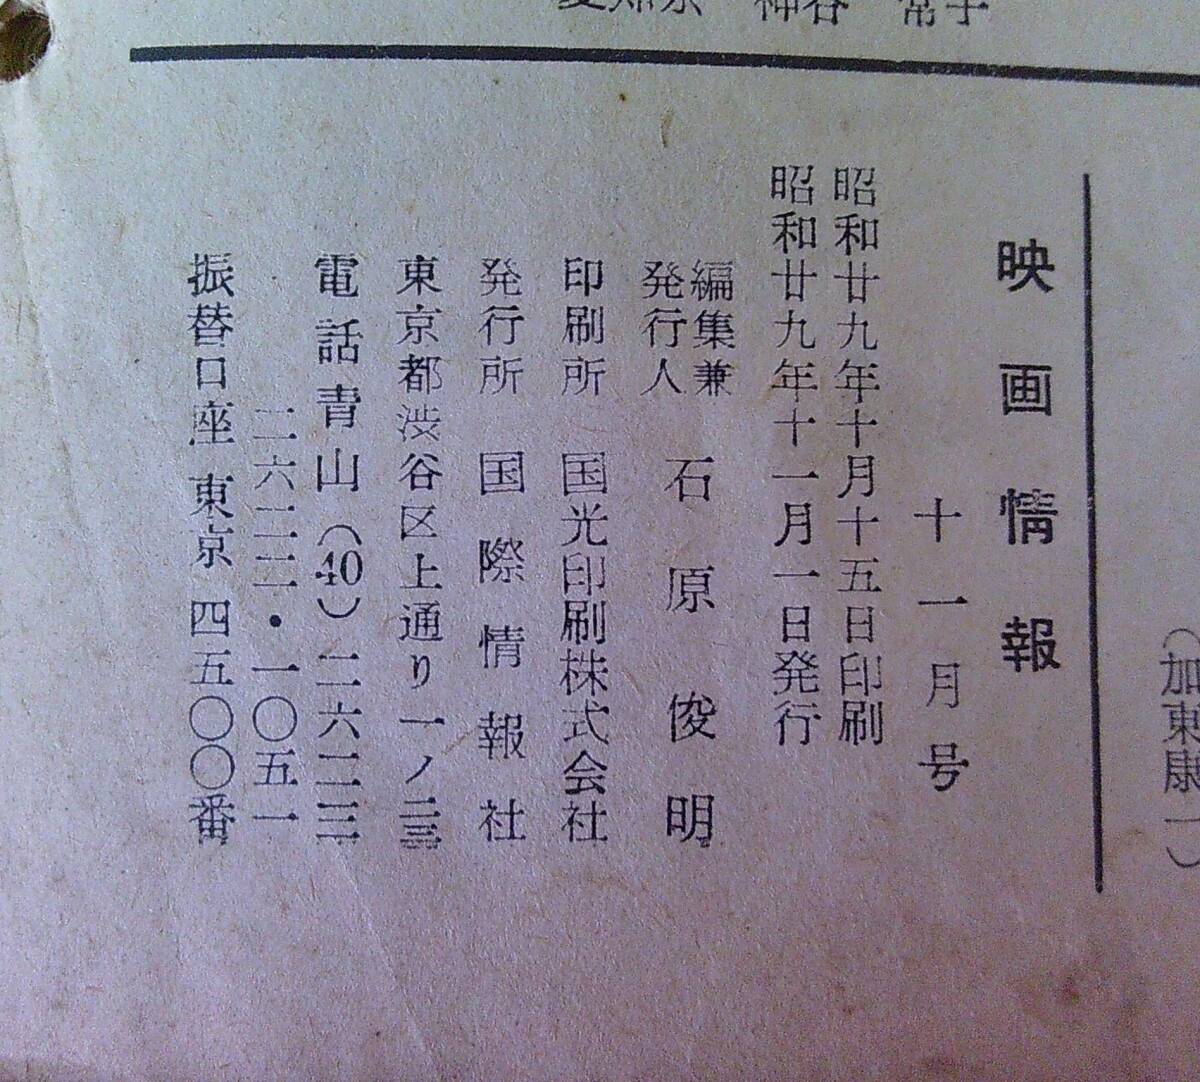 神谷 常子
（加東康一）
映画情報
十一月号
昭和廿九年十月十五日印刷
昭和廿九年十一月一日発行
編集兼
発行人 石原俊明
印刷所 国光印刷株式会社
発行所 国際情報社
東京都渋谷区上通り一ノ二三
電話青山（40）二六二三
二六三二・一〇五一
振替口座 東京 四五〇〇番